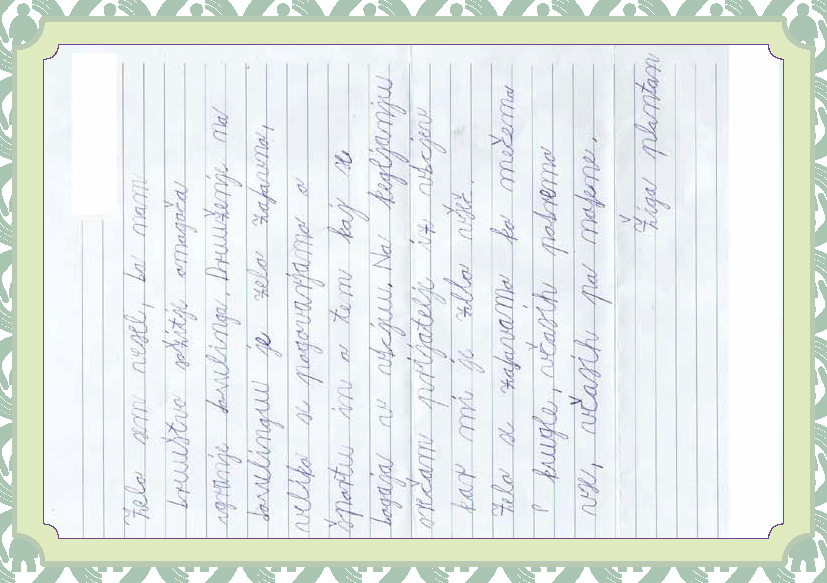 Zelo sem vesel, da nam
društvo sožitje omogoča
igranje bowlinga. Druženje na
bowlingu je zelo zabavno,
veliko se pogovarjamo o
športu in o tem kaj se
dogaja v vdcju. Na kegljanju
srečam prijatelje iz vdcjev
kar mi je zelo všeč.
Zelo se zabavamo ko mečemo
krugle, včasih podremo
vse, včasih pa nobene.
Žiga plantan